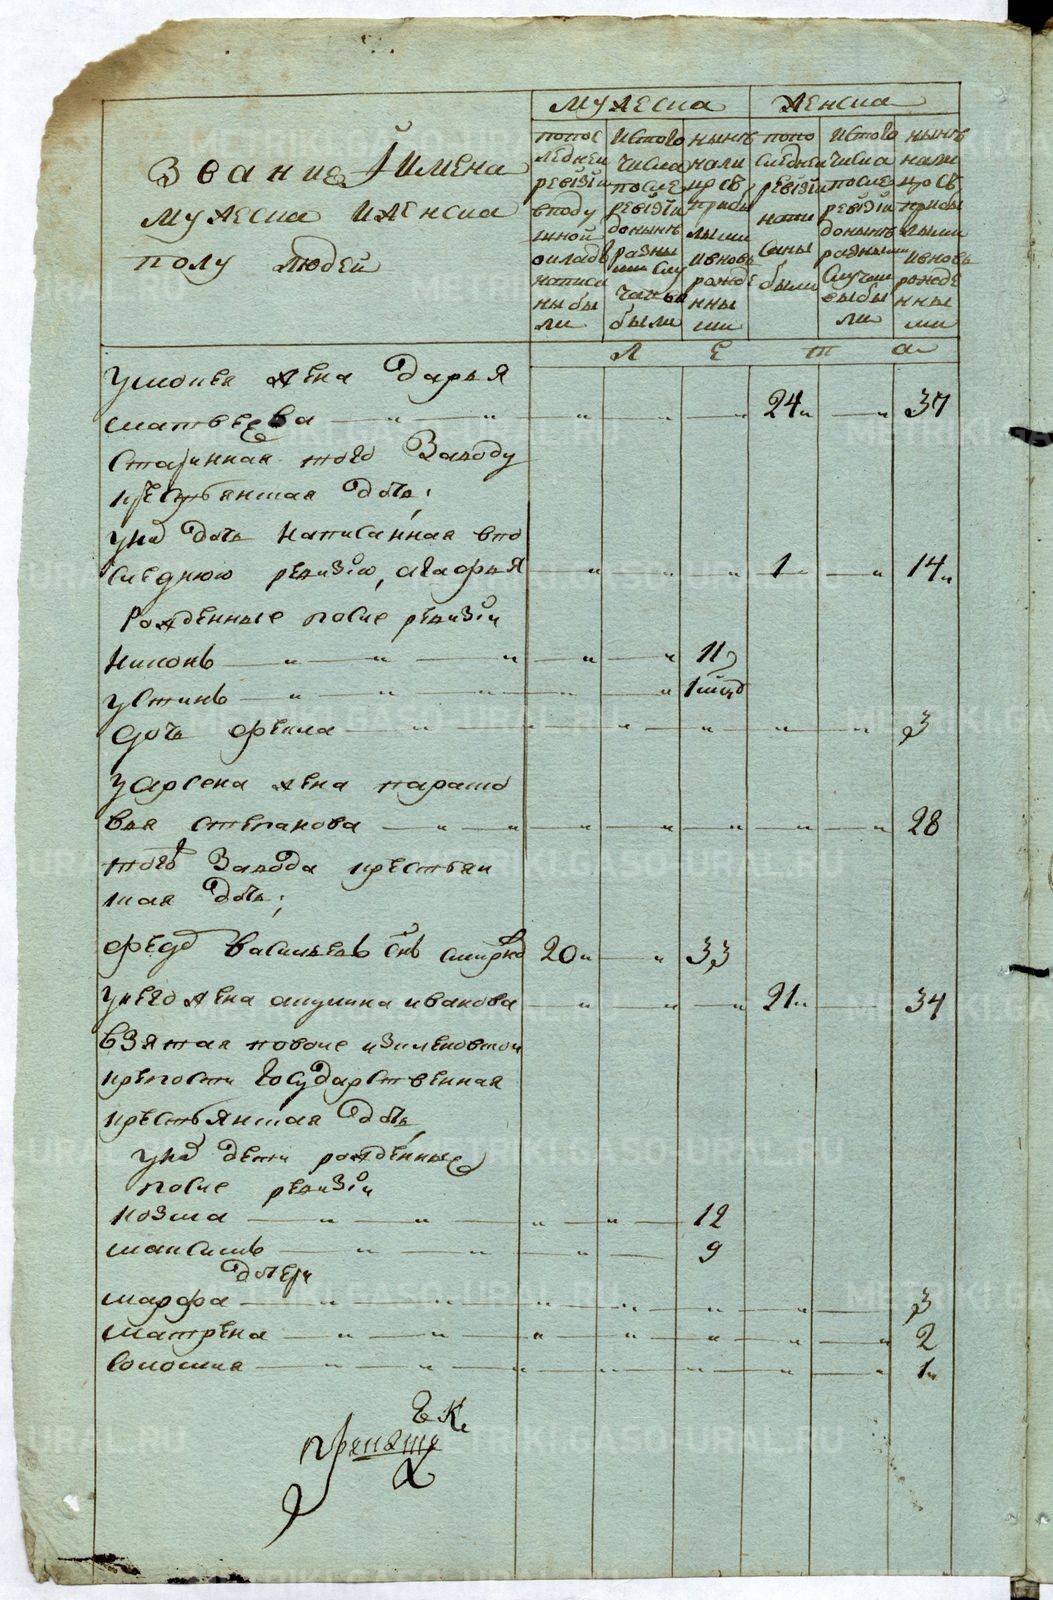 Звание Имена
мужеска иженска
полу людей
мужеска
женска
попос
ледней
ревизiи
вподу
шной
окладъ
написа
ны бы
ли
истого
числа
после
ревизiи
донынѣ
разны
ми слу
чаи
были
нынѣ
нали
цо съ
прибы
лыми
ивновь
рожде
нны
ми
попо
следней
ревизiи
напи
саны
были
истого
числа
после
ревизiи
донынѣ
разными
случаи
выбы
ли
нынѣ
нали
цо съ
прибы
лыми
ивновь
рожде
нны
ми
Л Е т а
жена Дарья
матвеева 24 37
Старинная того Заводу
крестьянская дочь;
унихъ дочь написанная впо
следнюю ревизiю, агафья 1 14
Рожденные после ревизiи
никонъ 11
устинъ
дочь фекла 3
уарсена жена параско
вья степанова 28
того Завода крестьян
ская дочь;
федоръ васильевъ снъ 20 33
унего жена акулина иванова 21 34
взятая
крепости государственная
крестьянская дочь
унихъ дети рожденные
после ревизiи
козма 12
максимъ 9
дочери
марфа 3
матрена 2
соломия 1